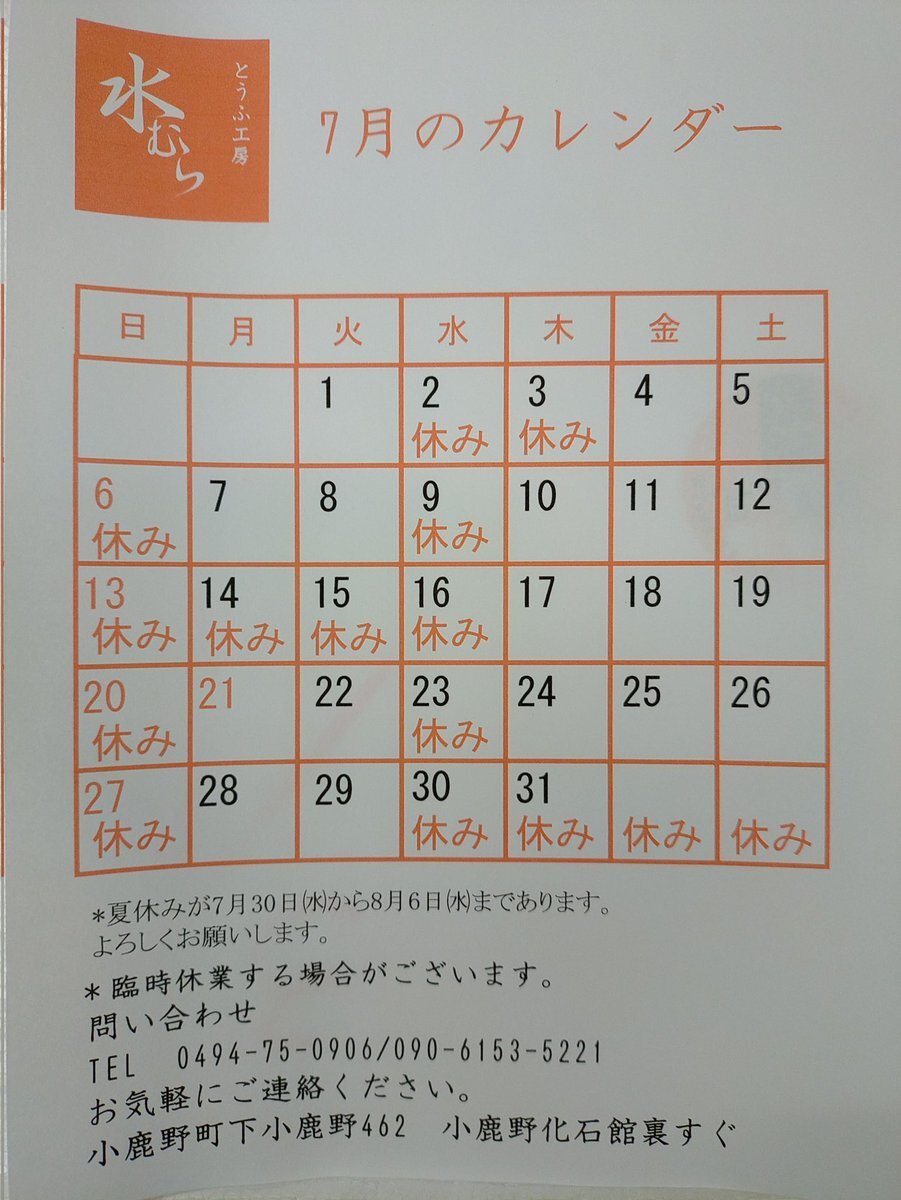 とうふ工房
水むら
7月のカレンダー
日 月 火 水 木 金 土
1 2 3 4 5
休み 休み
6 7 8 9 10 11 12
休み 休み
13 14 15 16 17 18 19
休み 休み 休み 休み
20 21 22 23 24 25 26
休み 休み
27 28 29 30 31
休み 休み 休み 休み 休み
*夏休みが7月30日㈬から8月6日㈬まであります。
よろしくお願いします。
*臨時休業する場合がございます。
問い合わせ
TEL 0494-75-0906/090-6153-5221
お気軽にご連絡ください。
小鹿野町下小鹿野462 小鹿野化石館裏すぐ